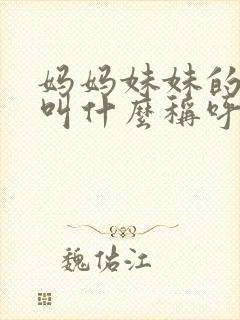 妈妈妹妹的
叫什麽稱呼
魏佑江